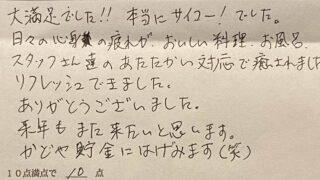 大満足でした!! 本当にサイコー!でした。
日々の心身の疲れが、おいしい料理、お風呂、
スタッフさん達のあたたかい対応で癒されました
リフレッシュできました。
ありがとうございました。
来年もまた来たいと思います。
かどや貯金にはげみます(笑)
10点満点で 10 点